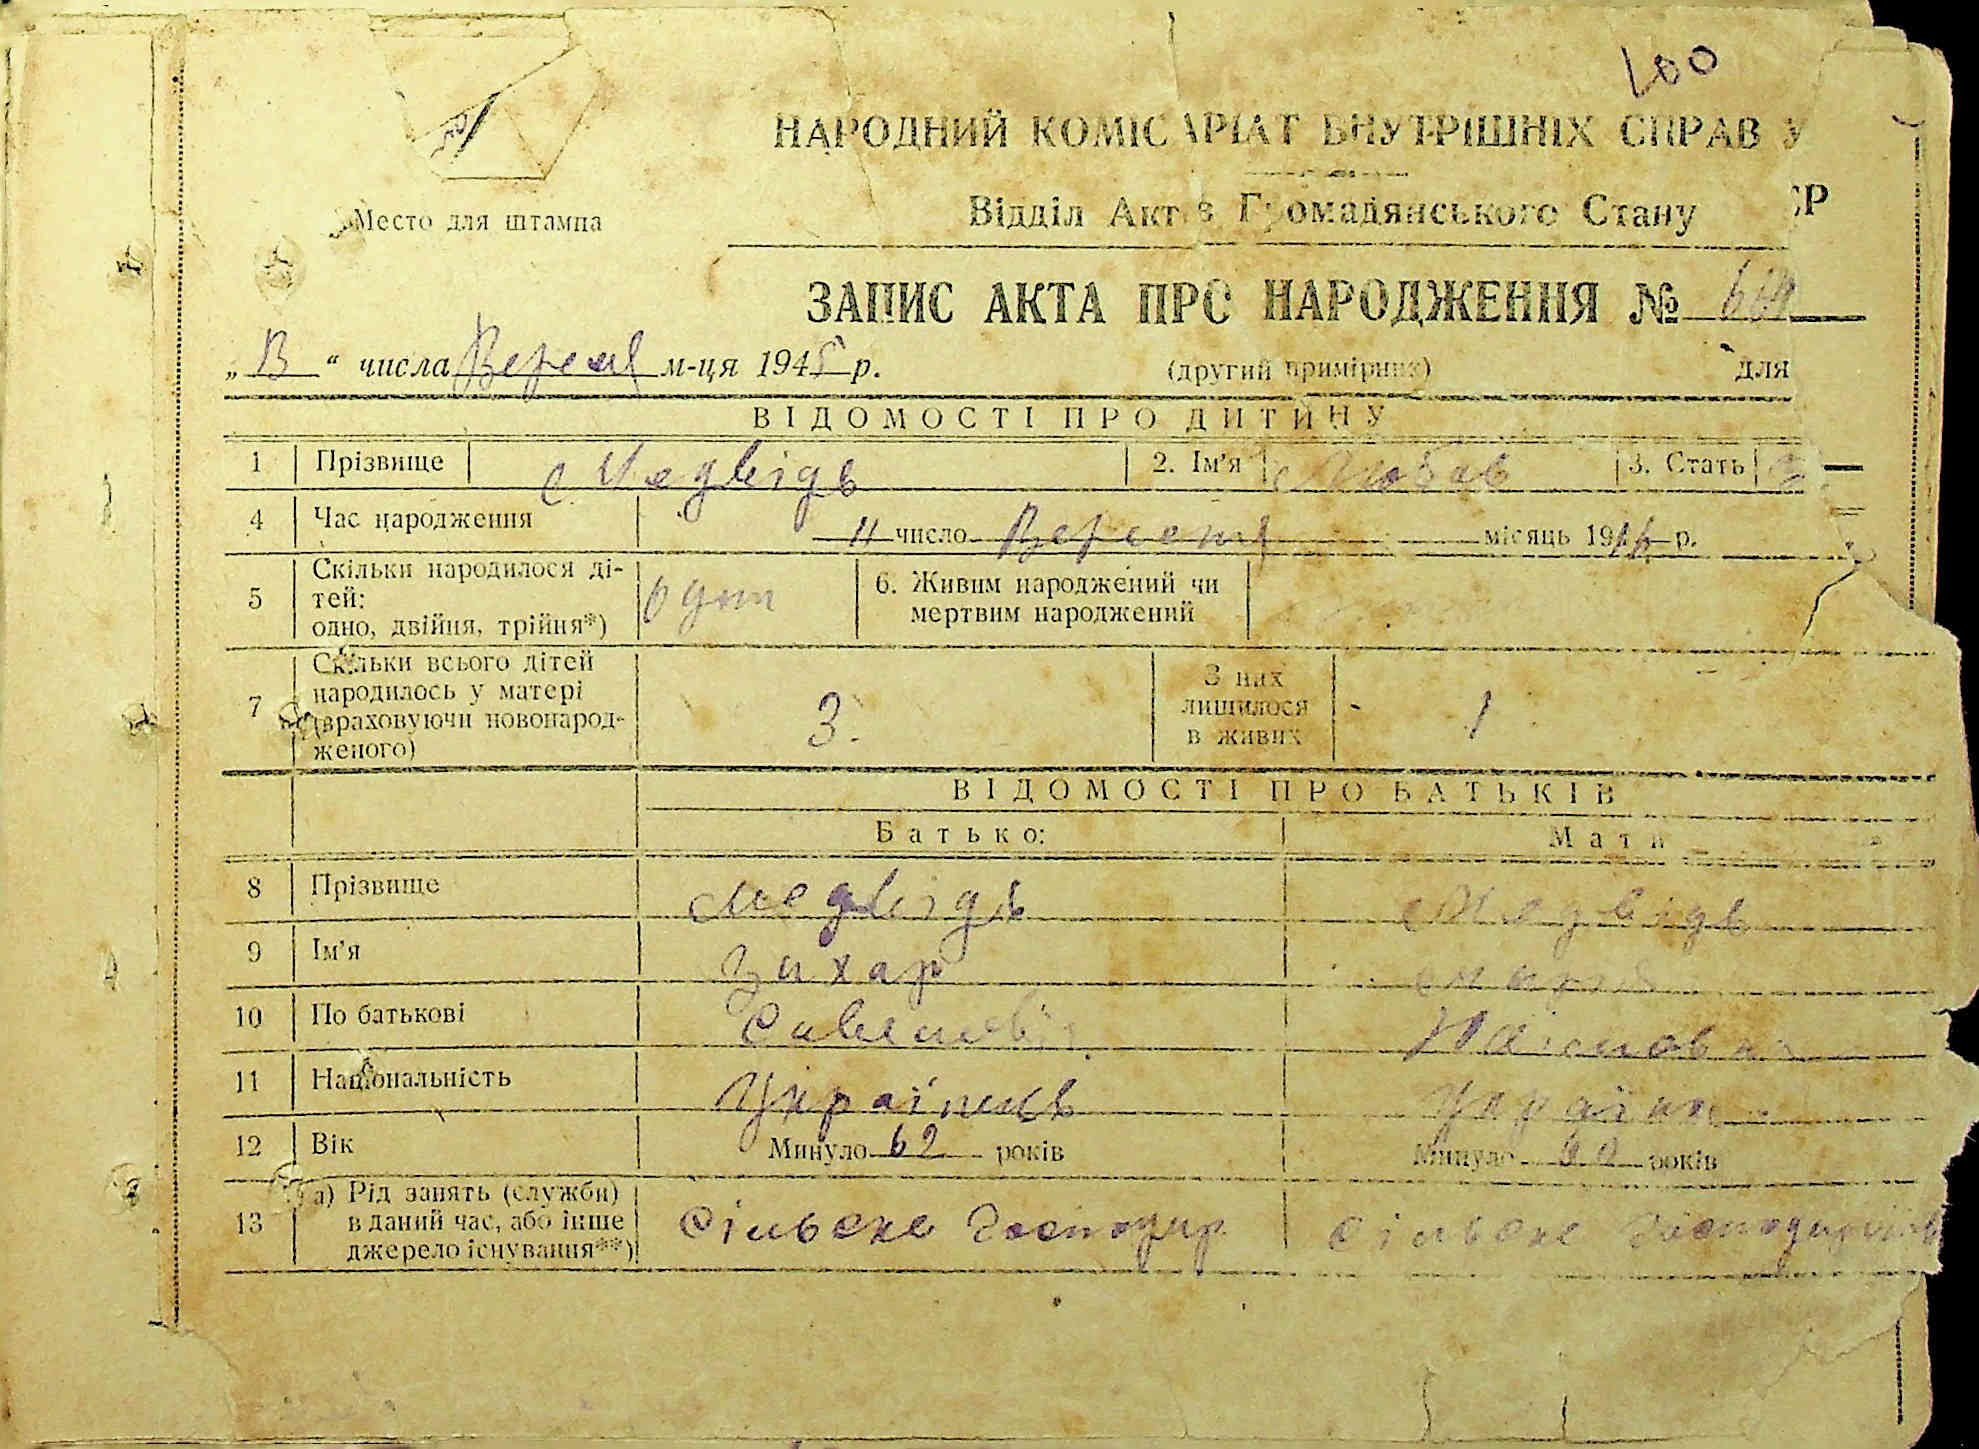 100
НАРОДНИЙ КОМІСАРІАТ ВНУТРІШНІХ СПРАВ У
СР
Место для штампа
Відділ Актів Громадянського Стану
ЗАПИС АКТА ПРО НАРОДЖЕННЯ №
" числа Вересня м-ця 1945 р.
(другий примірник)
для
ВІДОМОСТІ ПРО ДИТИНУ
1 Прізвище Медвідь 2. Ім'я Любов 3. Стать
4 Час народження 11 число Вересня місяць 19 р.
5 Скільки народилося ді-
тей:
одно, двійня, трійня*)
одит
6. Живим народжений чи
мертвим народжений
7 Скільки всього дітей
народилось у матері
(враховуючи новонарод-
женого)
3.
З них
лишилося
в живих
1
ВІДОМОСТІ ПРО БАТЬКІВ
Батько: Мати
8 Прізвище Медвідь Медвідь
9 Ім'я Захар
10 По батькові
11 Національність Українець Українка
12 Вік Минуло 62 років Минуло років
13 а) Рід занять (служби)
в даний час, або інше
джерело існування**)
Сільське Господар Сільське